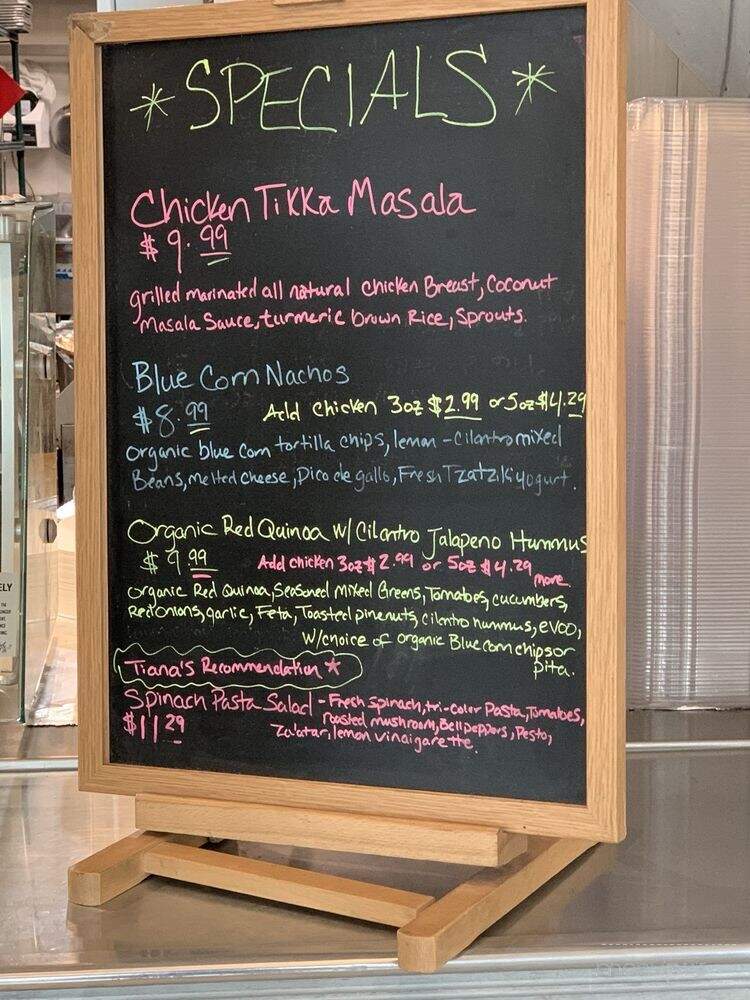 * SPECIALS *
Chicken Tikka Masala
$9.99
grilled marinated all natural chicken Breast, Coconut
Masala Sauce, turmeric brown Rice, Sprouts.
Blue Corn Nachos
$8.99 Add chicken 3oz $2.99 or 5oz $4.29
organic blue corn tortilla chips, lemon-cilantro mixed
Beans, melted cheese, Pico de gallo, Fresh Tzatziki yogurt.
Organic Red Quinoa w/ Cilantro Jalapeno Hummus
$9.99 Add chicken 3oz $2.99 or 5oz $4.29
more.
organic Red Quinoa, Seasoned Mixed Greens, Tomatoes, cucumbers,
Red Onions, garlic, Feta, Toasted pinenuts, cilantro hummus, evoo,
w/choice of organic Blue corn chips or
pita.
Tiana's Recommendation *
Spinach Pasta Salad - Fresh spinach, tri-color Pasta, Tomatoes,
$11.29 roasted mushroom, Bell peppers, Pesto,
lemon vinaigarette.
ELY